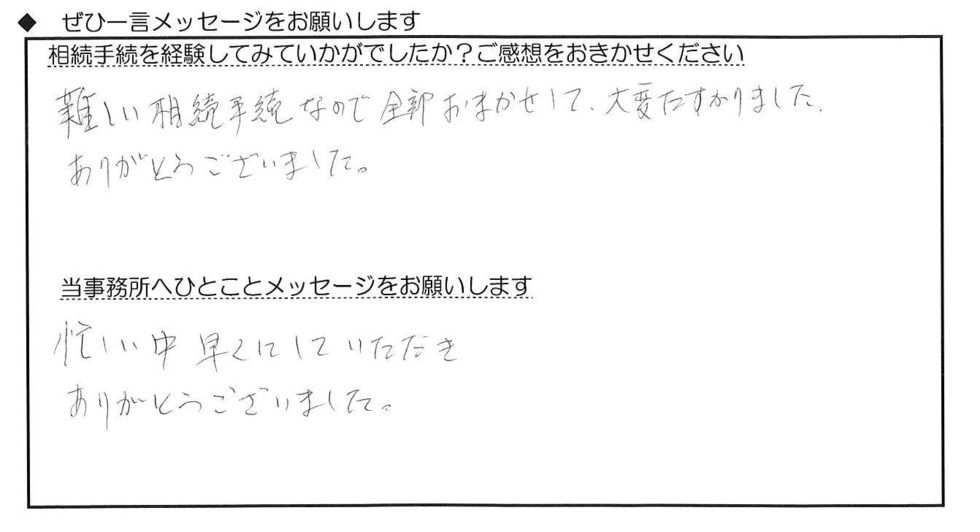 ◆ ぜひ一言メッセージをお願いします
相続手続を経験してみていかがでしたか?ご感想をおきかせください
難しい相続手続なので全部おまかせして、大変たすかりました、
ありがとうございました。
当事務所へひとことメッセージをお願いします
忙しい中早くにしていただき
ありがとうございました。